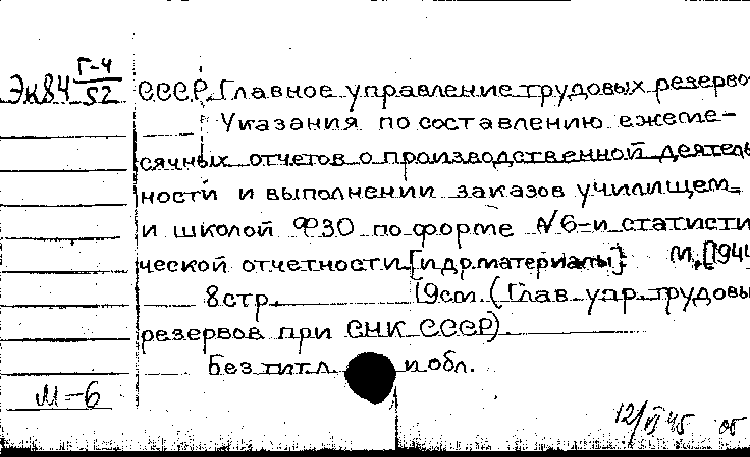 Г-4
Эк84 52
СССР. Главное управление трудовых резерво
Указания по составлению ежеме-
сячных отчетов о производственной деятель
ности и выполнении заказов училищем
и школой ФЗО по форме №6-и статисти
ческой отчетности [и др. материалы]. М., [194
8 стр. 19см. (Глав. упр. трудовы
резервов при СНК СССР).
Без тит. л. и обл.
М-6
12/VI 45